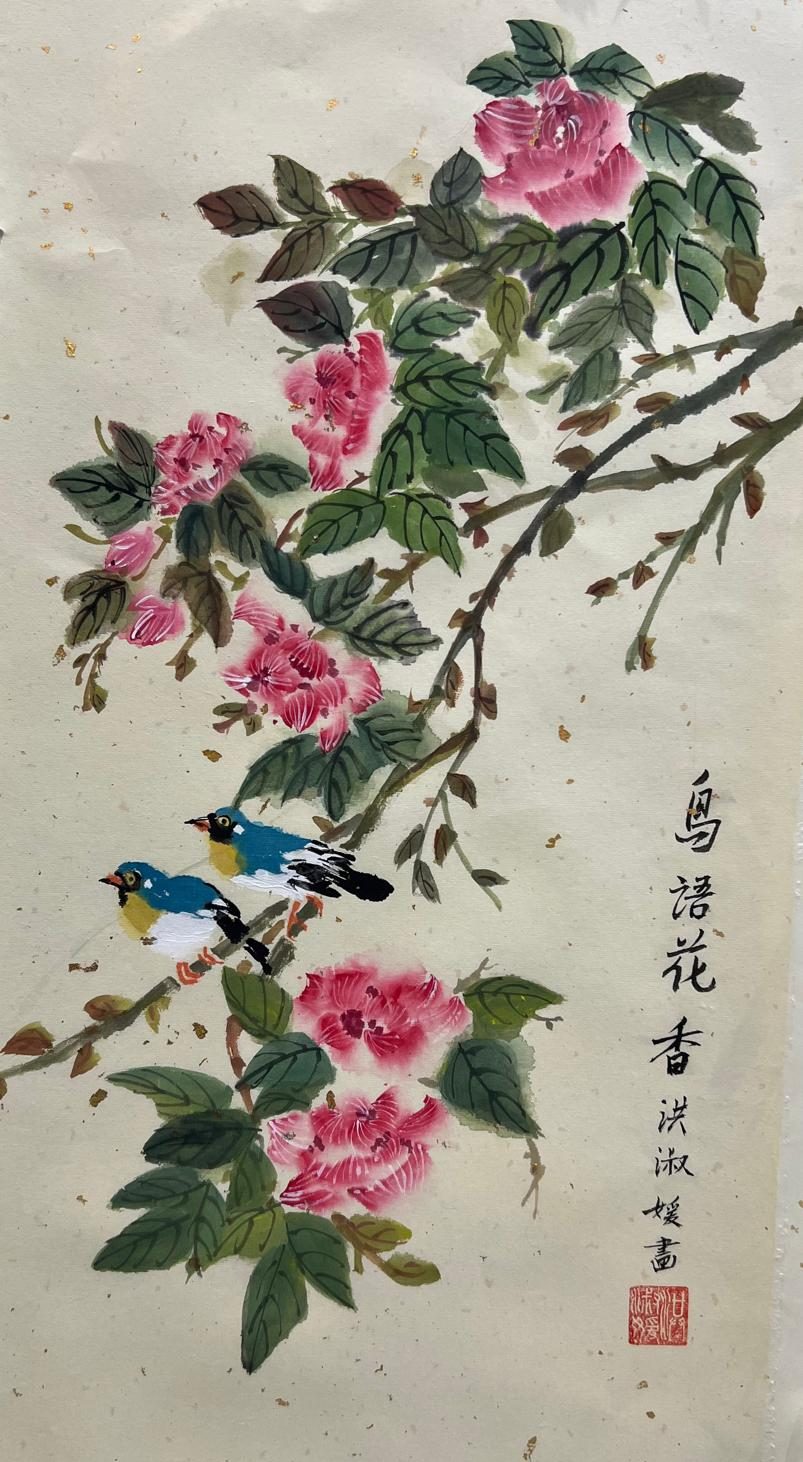 鳥語花香
洪淑媛畫